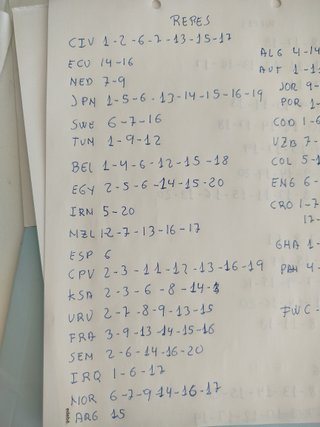 REPES
CIV 1-2-6-7-13-15-17
ECU 14-16
NED 7-9
JPN 1-5-6-13-14-15-16-19
SWE 6-7-16
TUN 1-9-12
BEL 1-4-6-12-15-18
EGY 2-5-6-14-15-20
IRN 5-20
NZL 12-7-13-16-17
ESP 6
CPV 2-3-11-12-13-16-19
KSA 2-3-6-8-14-
URU 2-7-8-9-13-15
FRA 3-9-13-14-15-16
SEN 2-6-14-16-20
IRQ 1-6-17
NOR 6-7-9-14-16-17
ARG 15
ALG 4-14
AUT 1-1
JOR 9-
POR 1-
COD 1-6
UZB 7-
COL 5-1
ENG 6-
CRO 1-7
17-
GHA 1-
PAN 4-
FWC-